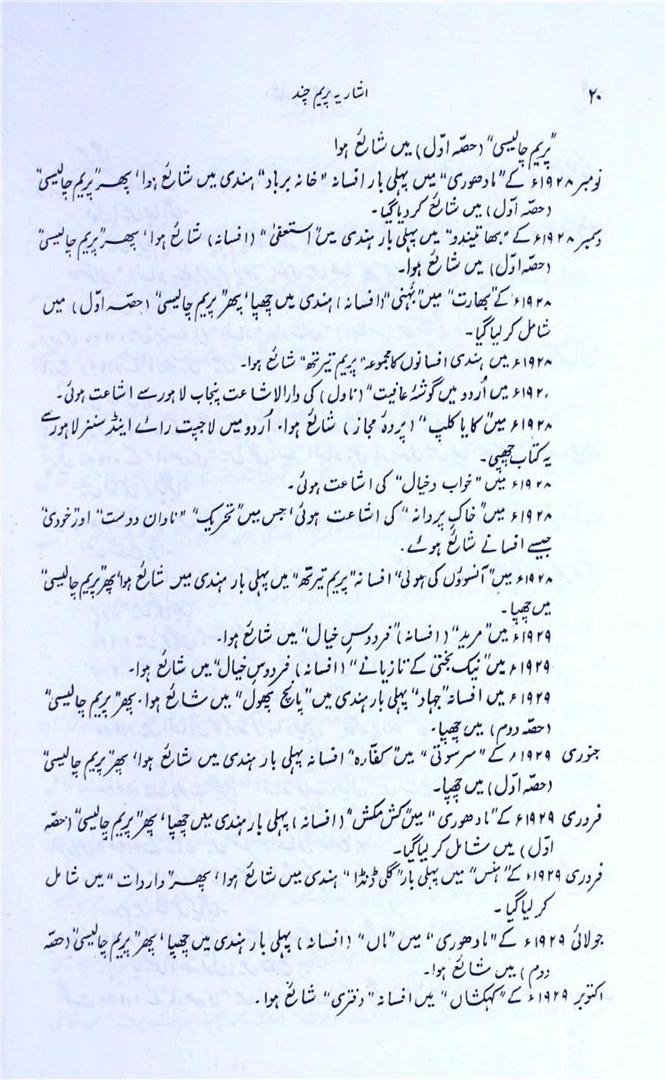 ۲۰
اشاریہ پریم چند
"پریم چالیسی" (حصّہ اوّل) میں شائع ہوا
نومبر ۱۹۲۸ء کے "مادھوری" میں پہلی بار افسانہ "خانہ برباد" ہندی میں شائع ہوا، پھر "پریم چالیسی"
(حصّہ اوّل) میں شائع کردیاگیا۔
دسمبر ۱۹۲۸ء کے "بھارتیندو" میں پہلی بار ہندی میں "استعفیٰ" (افسانہ) شائع ہوا، پھر "پریم چالیسی"
(حصّہ اوّل) میں شائع ہوا۔
۱۹۲۸ء کے "بھارت" میں "بُہنی" (افسانہ) ہندی میں چھپا، پھر "پریم چالیسی" (حصّہ اوّل) میں
شامل کرلیاگیا۔
۱۹۲۸ء میں ہندی افسانوں کا مجموعہ "پریم تیرتھ" شائع ہوا۔
۱۹۲۸ء میں اُردو میں گوشۂ عافیت" (ناول) کی دارالاشاعت پنجاب لاہور سے اشاعت ہوئی۔
۱۹۲۸ء میں "کایا کلپ" (پردۂ مجاز) شائع ہوا۔ اُردو میں لاجپت رائے اینڈ سنز لاہور سے
یہ کتاب چھپی۔
۱۹۲۸ء میں "خواب و خیال" کی اشاعت ہوئی۔
۱۹۲۸ء میں "خاکِ پروانہ" کی اشاعت ہوئی، جس میں "تحریک" "نادان دوست" اور "خودی"
جیسے افسانے شائع ہوئے۔
۱۹۲۸ء میں "آنسوؤں کی ہولی" افسانہ "پریم تیرتھ" میں پہلی بار ہندی میں شائع ہوا، پھر "پریم چالیسی"
میں چھپا۔
۱۹۲۹ء میں "مرید" (افسانہ) "فردوسِ خیال" میں شائع ہوا۔
۱۹۲۹ء میں "نیک بختی کے تازیانے" (افسانہ) فردوسِ خیال" میں شائع ہوا۔
۱۹۲۹ء میں افسانہ "جہاد" پہلی بار ہندی میں "پانچ پھول" میں شائع ہوا۔ پھر "پریم چالیسی"
(حصّہ دوم) میں چھپا۔
جنوری ۱۹۲۹ء کے "سرسوتی" میں "کفّارہ" افسانہ پہلی بار ہندی میں شائع ہوا، پھر "پریم چالیسی"
(حصّہ اوّل) میں چھپا۔
فروری ۱۹۲۹ء کے "مادھوری" میں "کش مکش" (افسانہ) پہلی بار ہندی میں چھپا، پھر "پریم چالیسی" (حصّہ
اوّل) میں شامل کرلیاگیا۔
فروری ۱۹۲۹ء کے "ہنس" میں پہلی بار "گلی ڈنڈا" ہندی میں شائع ہوا، پھر "واردات" میں شامل
کرلیاگیا۔
جولائی ۱۹۲۹ء کے "مادھوری" میں "ماں" (افسانہ) پہلی بار ہندی میں چھپا، پھر "پریم چالیسی" (حصّہ
دوم) میں شائع ہوا۔
اکتوبر ۱۹۲۹ء کے "کہکشاں" میں افسانہ "دفتری" شائع ہوا۔